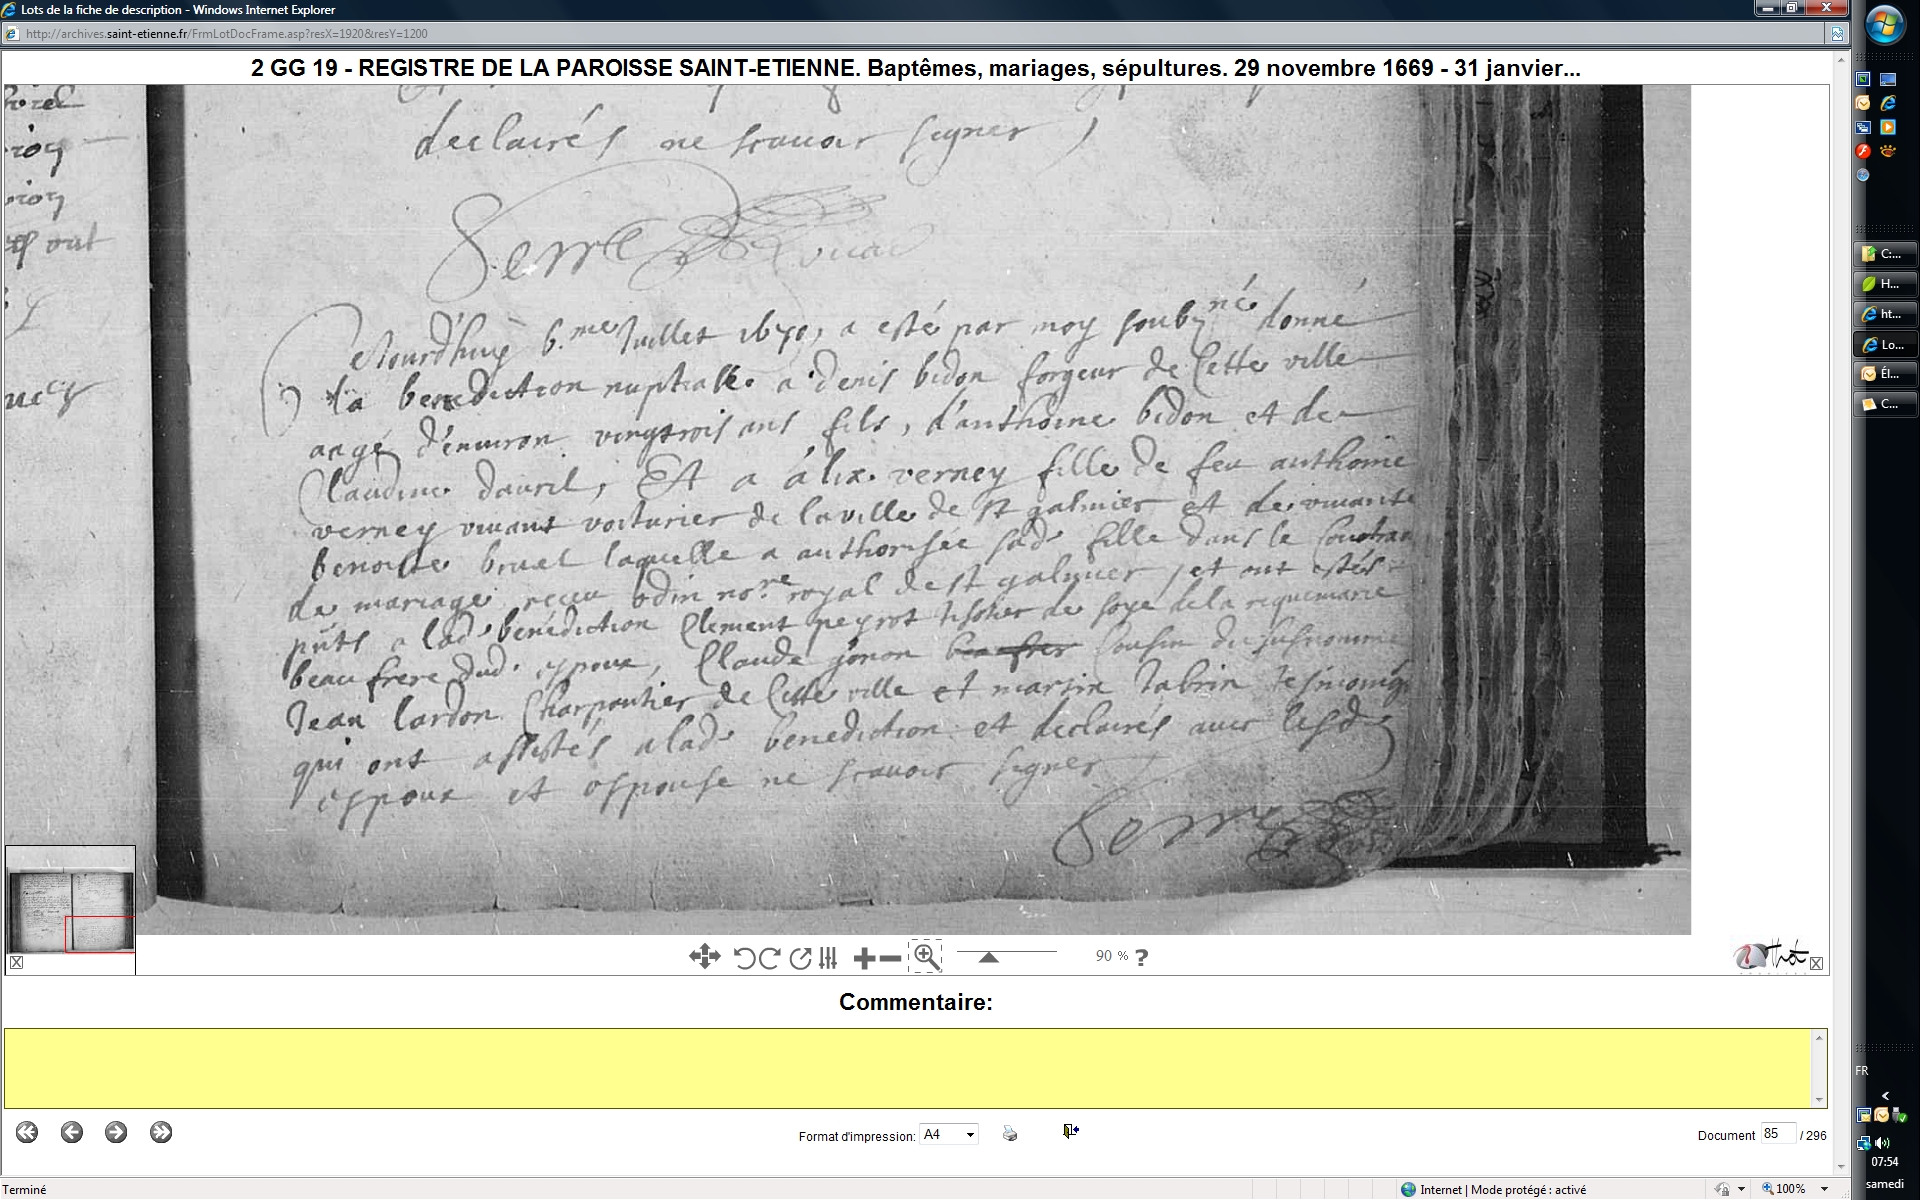 Lots de la fiche de description - Windows Internet Explorer
http://archives.saint-etienne.fr/FrmLotDocFrame.asp?resX=1920&resY=1200
2 GG 19 - REGISTRE DE LA PAROISSE SAINT-ETIENNE. Baptêmes, mariages, sépultures. 29 novembre 1669 - 31 janvier...
declairés ne scavoir signer
Cejourd'huy 6.me Juillet 1670, a esté par moy soubzné donné
la benediction nuptialle a denis bidon forgeur de Cette ville
aagé d'environ vingtrois ans fils, d'anthoine bidon et de
Claudine dauril, Et a alix verney fille de feu anthoine
verney vivant voiturier de la ville de st galmier et de vivante
benoiste bruel laquelle a authorisée sad. fille dans le Contrat
de mariage receu odin nore royal de st galmier, et ont estés
pnts a lad. benediction Clement peyrot tissotier de soye de la
beaufrere dud. espoux, Claude jonon beaufrer Cousin du susnommé
Jean lardon Charpentier de Cette ville et martin tabrin
qui ont assistés a lad. benediction et declairés avec lesd.
espoux et espouse ne scavoir signer
90 % ?
Commentaire:
Format d'impression: A4
Document 85 / 296
Terminé
Internet | Mode protégé : activé
100%
C:...
H...
ht...
Lo...
Él...
C...
FR
07:54
samedi